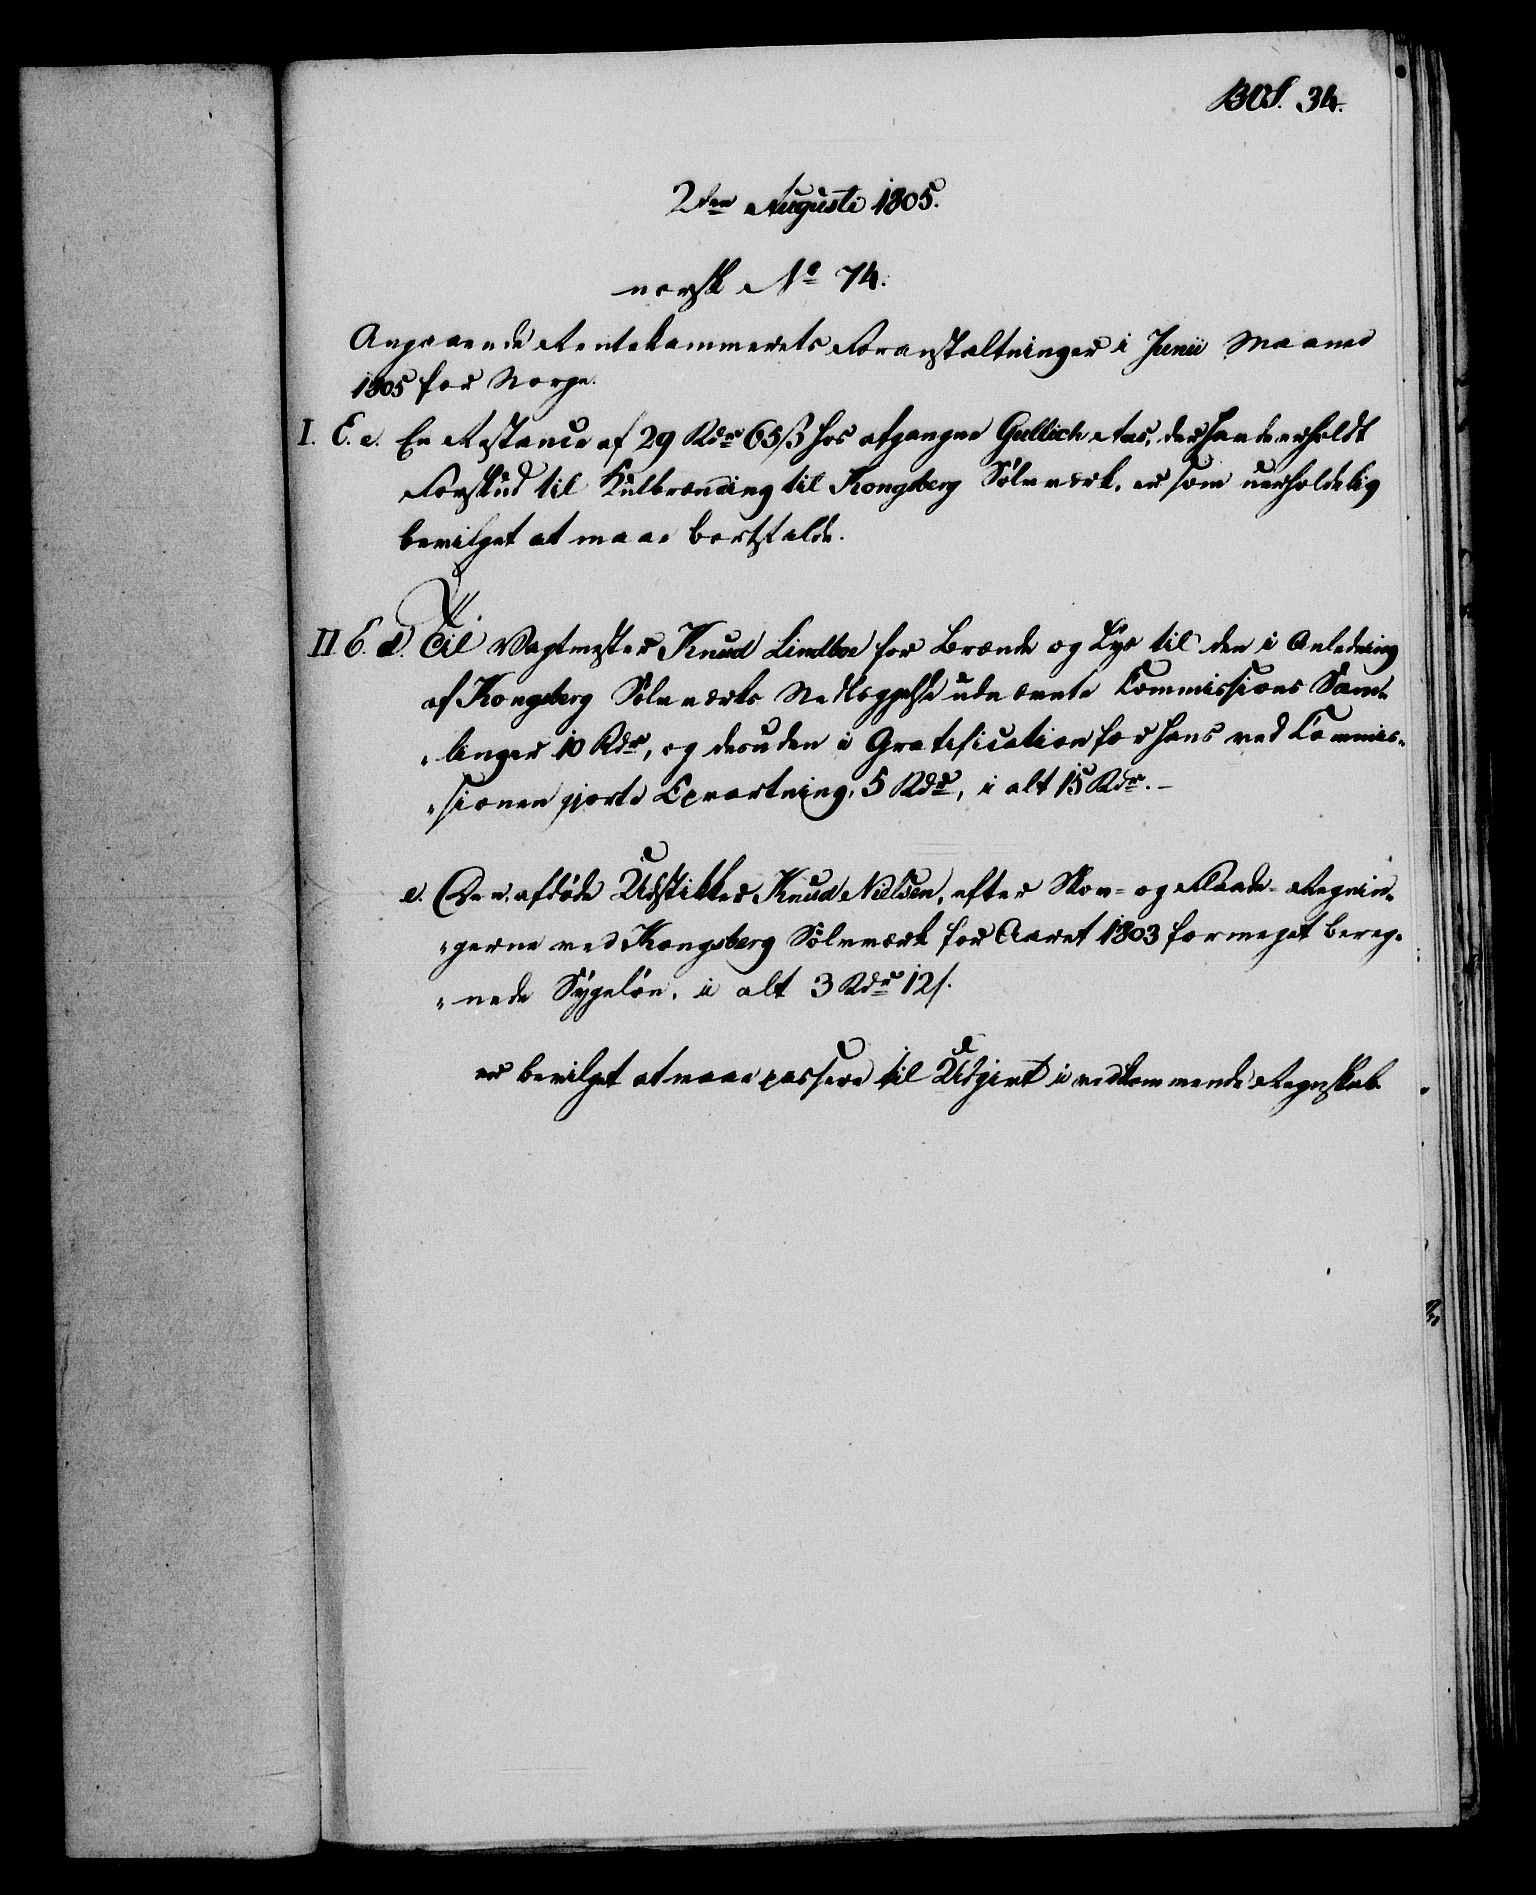 BOS. 34.
2den Augusti 1805.
norsk No 74.
Angaaende Rentekammerets Foranstaltninger i Junii Maaned
1805 for Norge.
I. E. e. En Restance af 29 Rdr 65 ß hos afgangne Gullich Aas, der havde erholdt
Forskud til Kulbrænding til Kongsberg Sølvværk, er som uerholdelig
bevilget at maae bortfalde.
II E. d. Til Vagtmester Knud Lindboe for Brænde og Lys til den i Anledning
af Kongsberg Sølvværks Nedlæggelse udnævnte Commissions Sam-
linger 10 Rdr, og desuden i Gratification for hans ved Commis-
sionen gjorte Opvartning, 5 Rdr, i alt 15 Rdr.-
e. Den afdøde Udstikker Knud Nielsen, efter Skov- og Flaade-Regnin-
gerne ved Kongsberg Sølvværk for Aaret 1803 formeget bereg-
nede Sygeløn, i alt 3 Rdr 12 s.
er bevilget at maae passere til Udgivt i vedkommende Regnskab.